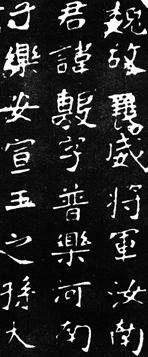 魏故襄威將軍汝南
君諱字普樂河南
子樂安宣王之孫大